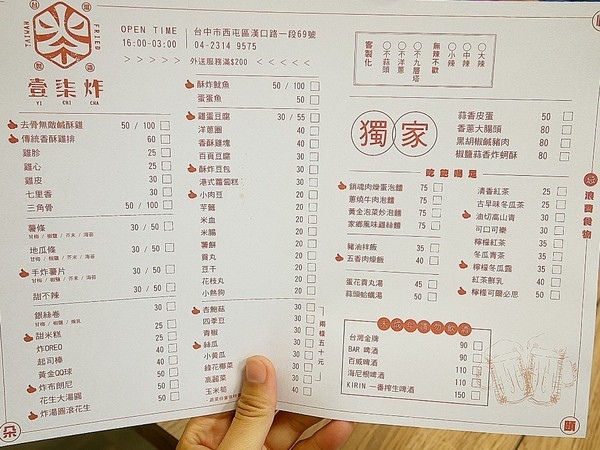 台灣
TAIWAN
FRIED
炸
壹柒炸
YI CHI CHA
OPEN TIME
16:00-03:00
台中市西屯區漢口路一段69號
04-2314 9575
> > > > > > 外送服務滿$200 < < < < <
客製化
○不蒜頭
○不洋蔥
○不九層塔
無辣不歡
○小辣
○中辣
○大辣
去骨無敵鹹酥雞 50 / 100
傳統香酥雞排 60
雞胗 25
雞心 25
雞皮 30
七里香 30
三角骨 50 / 100
薯條 30 / 50
甘梅 / 椒鹽 / 芥末 / 海苔
地瓜條 30 / 50
甘梅 / 椒鹽 / 芥末 / 海苔
手炸薯片 30 / 50
甘梅 / 椒鹽 / 芥末 / 海苔
甜不辣 30 / 50
銀絲卷 30
甘梅 / 椒鹽 / 煉乳
甜米糕 25
炸OREO 40
起司棒 40
黃金QQ球 50
炸布朗尼 50
花生大湯圓 50
炸湯圓滾花生 50
酥炸魷魚 50 / 100
蛋蛋魚 50
雞蛋豆腐 30 / 55
洋蔥圈 40
香酥雞塊 40
百頁豆腐 30
酥炸豆包 30
港式蘿蔔糕 30
小肉豆 20
芋籤 20
米血 20
米腸 20
薯餅 20
貢丸 20
豆干 20
花枝丸 20
小熱狗 20
杏鮑菇 30
四季豆 30
青椒 30
絲瓜 30
小黃瓜 30
綠花椰菜 30
高麗菜 30
玉米筍 40
兩樣五十元
獨家
蒜香皮蛋 50
香蔥大腸頭 80
黑胡椒鹹豬肉 80
椒鹽蒜香炸蚵酥 80
吃飽喝足
銷魂肉燥蛋泡麵 75
蔥燒牛肉泡麵 75
黃金泡菜炒泡麵 75
家鄉風味雞絲麵 75
豬油拌飯 35
五香肉燥飯 40
蛋花貢丸湯 45
蒜頭蛤蠣湯 50
清香紅茶 25
古早味冬瓜茶 25
油切高山青 30
可口可樂 30
檸檬紅茶 35
冬瓜青茶 35
檸檬冬瓜露 35
紅茶鮮乳 40
檸檬可爾必思 50
浪費食物
未成年請勿飲酒
台灣金牌 90
BAR 啤酒 90
百威啤酒 90
海尼根啤酒 110
KIRIN 一番搾生啤酒 150
朵
頤